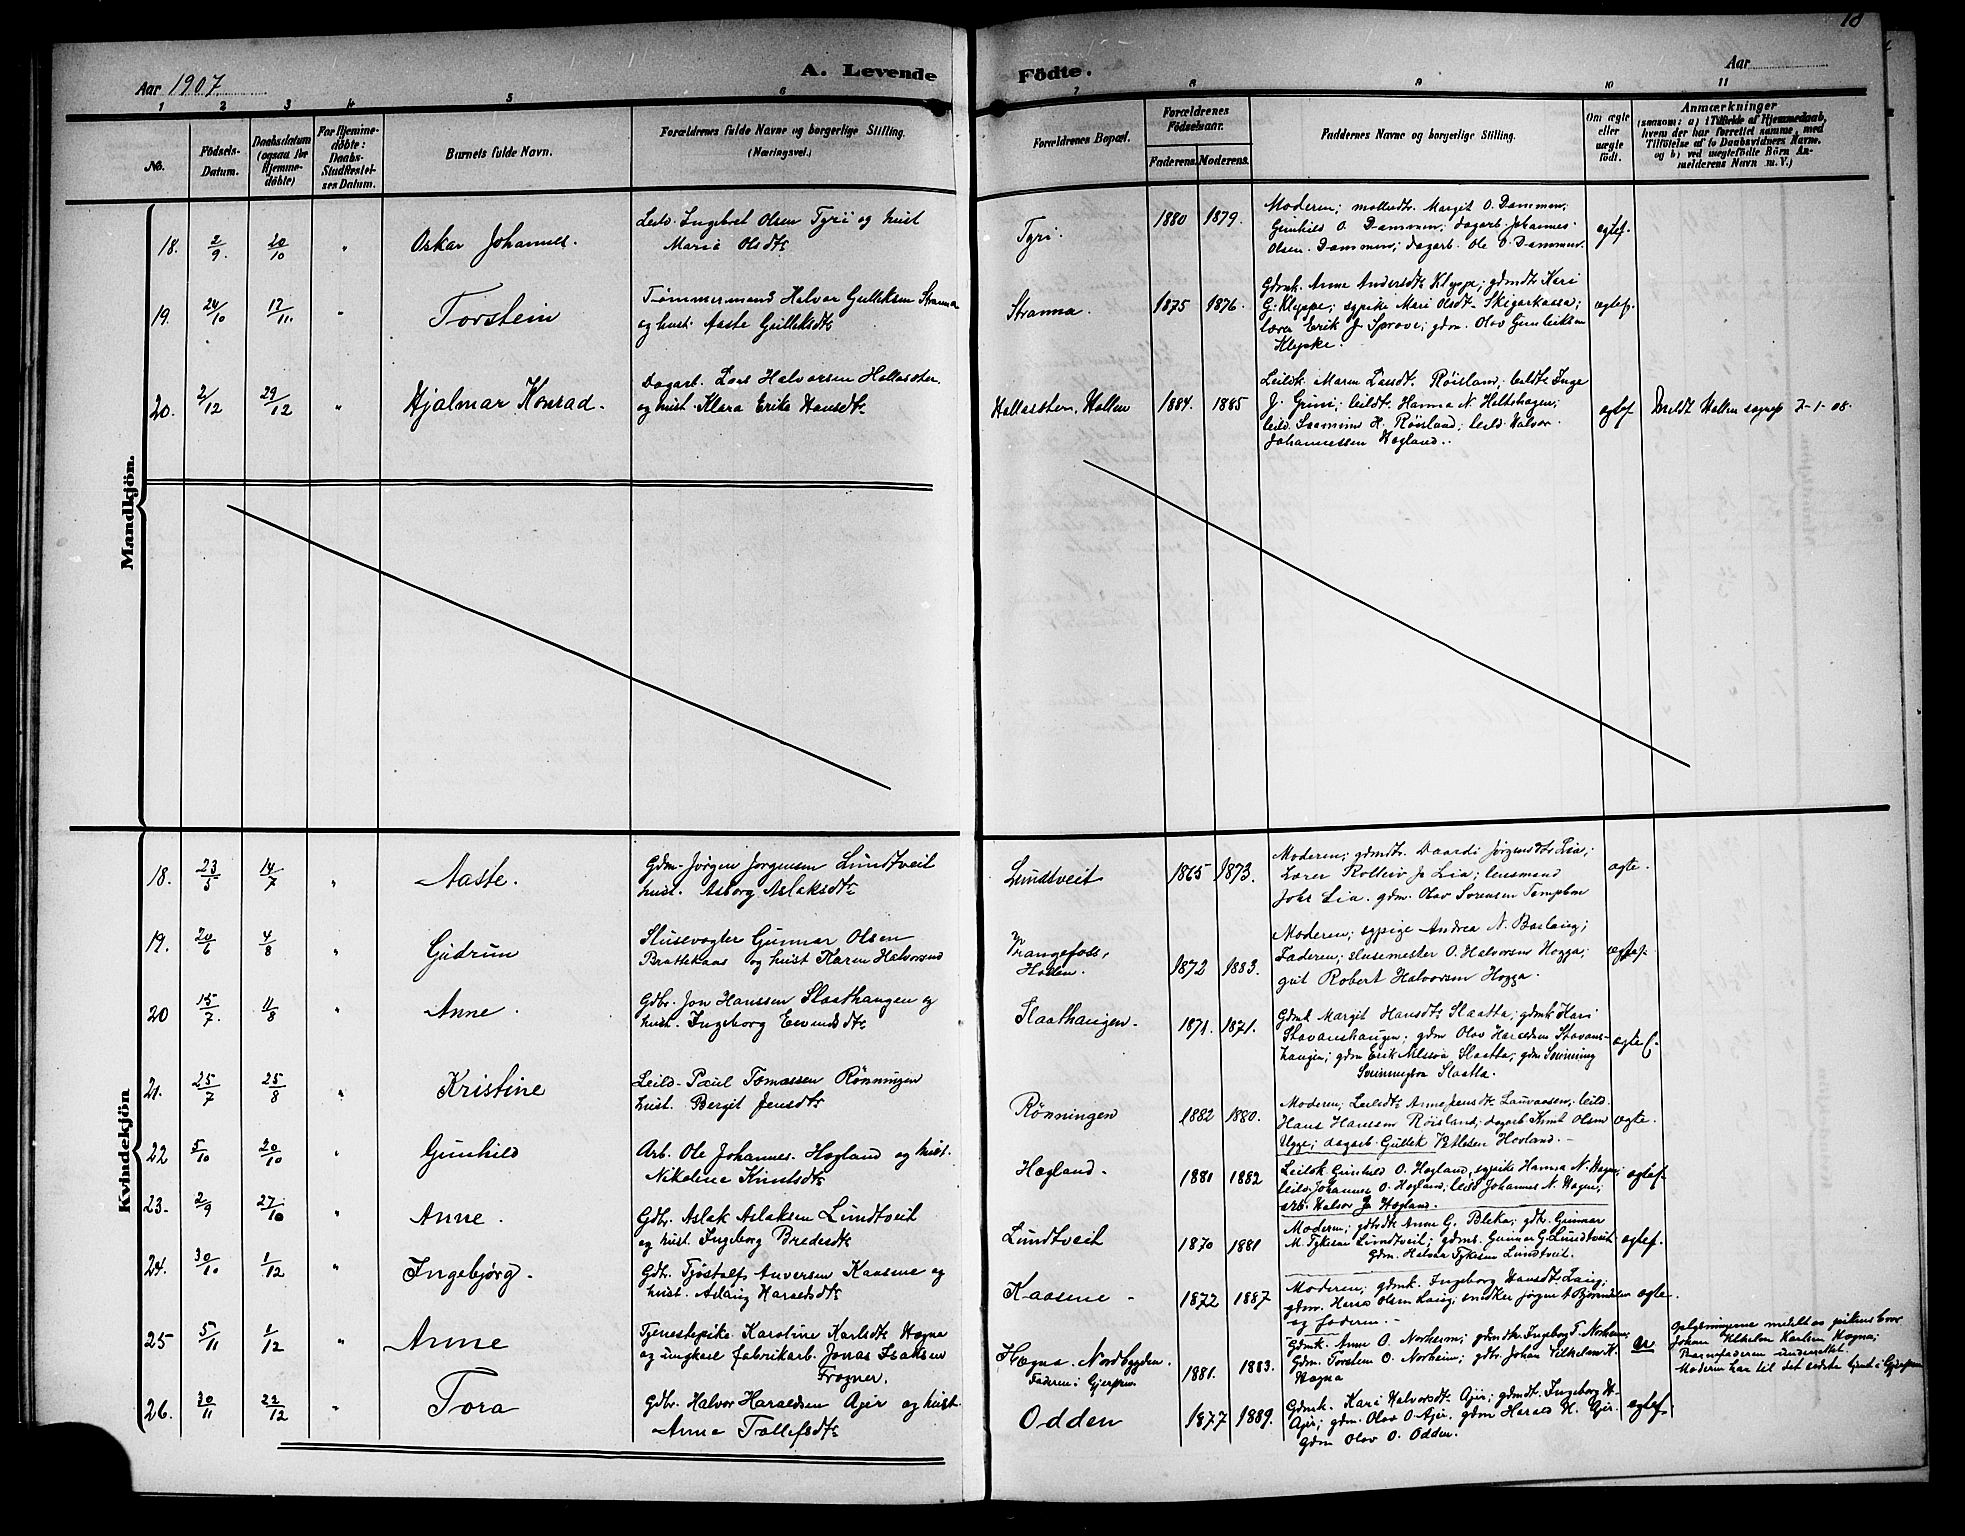 18
Aar 1907
A. Levende
Födte.
Aar
1 2 3 4 5 6 7 8 9 10 11
No.
Födsels-
Datum.
Daabsdatum
(ogsaa for
Hjemme-
döbte)
For Hjemme-
döbte:
Daabs-
Stadfæstel-
ses Datum.
Barnets fulde Navn.
Forældrenes fulde Navne og borgerlige Stilling.
(Næringsvei.)
Forældrenes Bopæl.
Forældrenes
Födselsaar.
Faderens. Moderens.
Faddernes Navne og borgerlige Stilling.
Om ægte
eller
uægte
födt.
Anmærkninger
(saasom: a) i Tilfælde af Hjemmedaab,
hvem der har forrettet samme, med
Tilföielse af to Daabsvidners Navne,
og b) ved uægtefödte Börn An-
melderens Navn m. V.)
Mandkjön.
18. 2/9. 20/10 " Oskar Johannes.
Leild. Ingebret Olsen Tyri og hust
Marie Olsdtr
Tyri. 1880 1879.
Moderen; Margit O. Dammen;
Gunhild O. Dammen; dagarb. Johannes
Olsen Dammen; dagarb. Ole O. Dammen.
ægtef.
19. 24/10 17/11. " Torstein
Tømmermand Halvor Gulleksen Stranna
og hust. Aaste Gulleksdtr
Stranna. 1875 1876.
Gdmk. Anne Andersdtr Kleppe; gdmdt. Kari
G. Kleppe; sypike Mari Olsdt. Skigarkassa;
lærer Erik J. ; gdm. Olav Gunleiksen
ægtef.
20. 2/12 29/12 " Hjalmar Konrad.
Dagarb. Lars Halvorsen Hollastten
og hust. Klara Erika Hansdtr
Hollastten, Hollen 1884. 1885
Leildk. Maren Røisland; leildt. Inge
J. Grini; leildt. Hanna N. Holtshagen;
leild. H. Røisland; leild. Halvor
Johannessen Hogland.
ægtef. Hollen sognep 7-1-08.
Kvindekjön
18. 23/5 14/7 " Aaste.
Gdm. Jörgen Jorgensen Lundtveit
hust. Asborg Aslaksdtr
Lundtveit 1865 1873.
Moderen; gdmdtr. Jörgensdtr Lia;
Lærer Rolleiv J. Lia; lensmand
Johs Lia. gdm. Olav Sorensen
ægte.
19. 20/6 4/8 " Gudrun
Slusevogter Gunnar Olsen
Brattekaas og hust Karen Halvorsd
Vrangefoss,
Hollen. 1872 1883.
Moderen; sypige Andrea N. ;
Faderen; slusemester O. Halvorsen Hogga;
gut Robert Halvorsen Hogga.
ægtef.
20 15/7. 11/8 " Anne.
Gdbr. Jon Hanssen Slaathaugen og
hust. Ingeborg Eivindsdtr
Slaathaugen. 1871. 1871.
Gdmk Margit Hansdtr Slaatta; gdmk Kari
Stavanshaugen; gdm Olav Haraldsen Stavans-
haugen; gdm Erik Nilsson Slaatta; gdm Sveinung
Sveinungson Slaatta.
ægtef.
21. 25/7 25/8 " Kristine
Leild. Paul Tomassen Rønningen
hust. Bergit Jensdtr
Rønningen 1882 1880.
Moderen; Leildtr Anne Jensdtr ; leild.
Hans Hanssen Røisland; dagarb. Knut Olsen
; dagarb. Gullek Hovland.
ægte.
22 5/10 20/10 " Gunhild
Arb. Ole Johannes. Hogland og hust.
Nikoline Knudsdtr
Hogland. 1881 1882
Leildk. Gunhild O. Hogland, sypike Hanna N. Hagen;
leild. Johannes O. Hogland; leild Johannes N. Hagen;
arb. Halvor J. Hogland.
ægtef.
23. 2/9 27/10 " Anne.
Gdbr. Aslak Aslaksen Lundtveit
og hust. Ingeborg Bredesdtr
Lundtveit 1870 1881
Moderen; gdbdtr Anne G. Bleka; gdbr. Gunnar
M. Tykesen Lundtveit; gdms. Gunnar G. Lundtveit
Gdm. Halvor Tykesen Lundtveit.
ægtef.
24. 30/10 1/12 " Ingebjörg.
Gdbr. Tjöstolf Anversen Kaasene og
hust. Aslaug Haraldsdtr
Kaasene 1872 1887
Moderen; gdmk. Ingeborg Hansdtr Laug;
gdm. Olsen Laug; snedker Jörgen A. Bjørndalen
og faderen.
ægte.
25 5/11 1/12 " Anne
Tjenestepike Karoline Karlsdtr Hogna
og ungkarl fabrikarb. Jonas Isaksen
Frogner.
Hogna. Nordbygden.
Faderen i Gjerpen 1881. 1883.
Gdmk. Anne O. Norheim; gdmdtr. Ingeborg T. Norheim;
Gdm. Torsten O. Norheim; gdbr. Johan Vilhelm K.
Hogna
u
Oplysningerne meddelt av pikens bror
Johan Vilhelm Karlsen Hogna;
Barnefaderen underrettet.
Moderen har til det sidste tjent i Gjerpen
26. 30/11 22/12 " Tora
Gdbr. Halvor Haraldsen Ajer og hust.
Anne Tollefsdtr
Odden 1877 1889.
Gdmk. Kari Halvorsdtr Ajer; gdmdt. Ingeborg H.
Ajer; gdm. Olav O. Ajer. gdm Harald H. Ajer.
gdm Olav O. Odden.
ægtef.